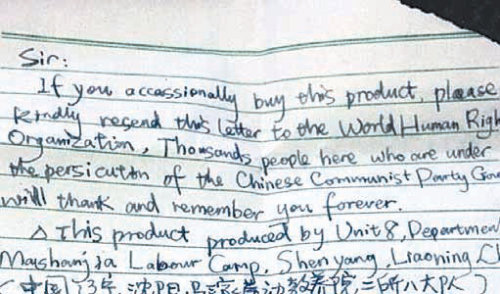 Sir:
If you occassionally buy this product, please
kindly resend this letter to the World Human Righ
Organization, Thousands people here who are under
the persicution of the Chinese Communist Party Gov
will thank and remember you forever.
△ This product produced by Unit 8, Departmen
Mashanjia Labour Camp, Shenyang, Liaoning,
(中国 沈阳 马家劳动教养院二所八大队)